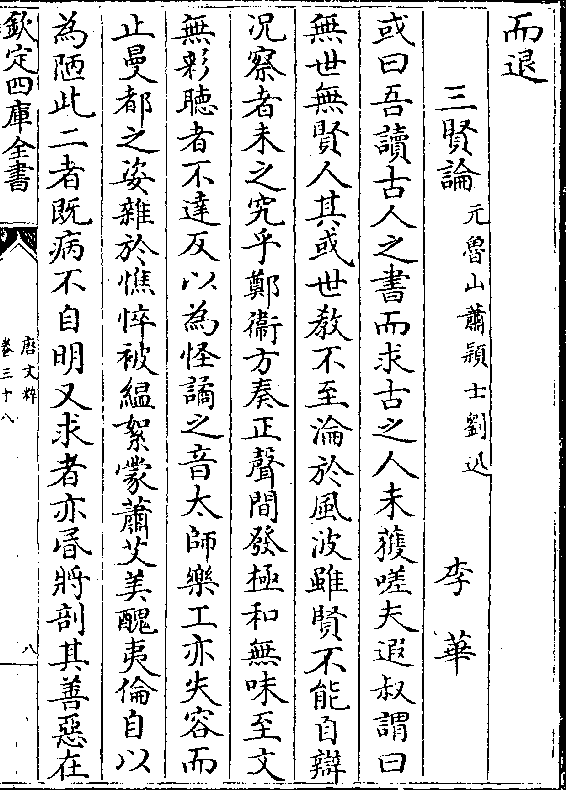 而退
三賢論 元魯山蕭頴士劉迅 李華
或曰吾讀古人之書而求古之人未獲嗟夫遐叔謂曰
無世無賢人其或世教不至淪於風波雖賢不能自辯
况察者未之究乎鄭衞方奏正聲間發極和無味至文
無彩聽者不達反以為怪譎之音太師樂工亦失容而
止曼都之姿雜於憔悴被緼絮蒙蕭艾美醜夷倫自以
為陋此二者既病不自明又求者亦昬將剖其善惡在
欽定四庫全書
唐文粹
卷三十八
八